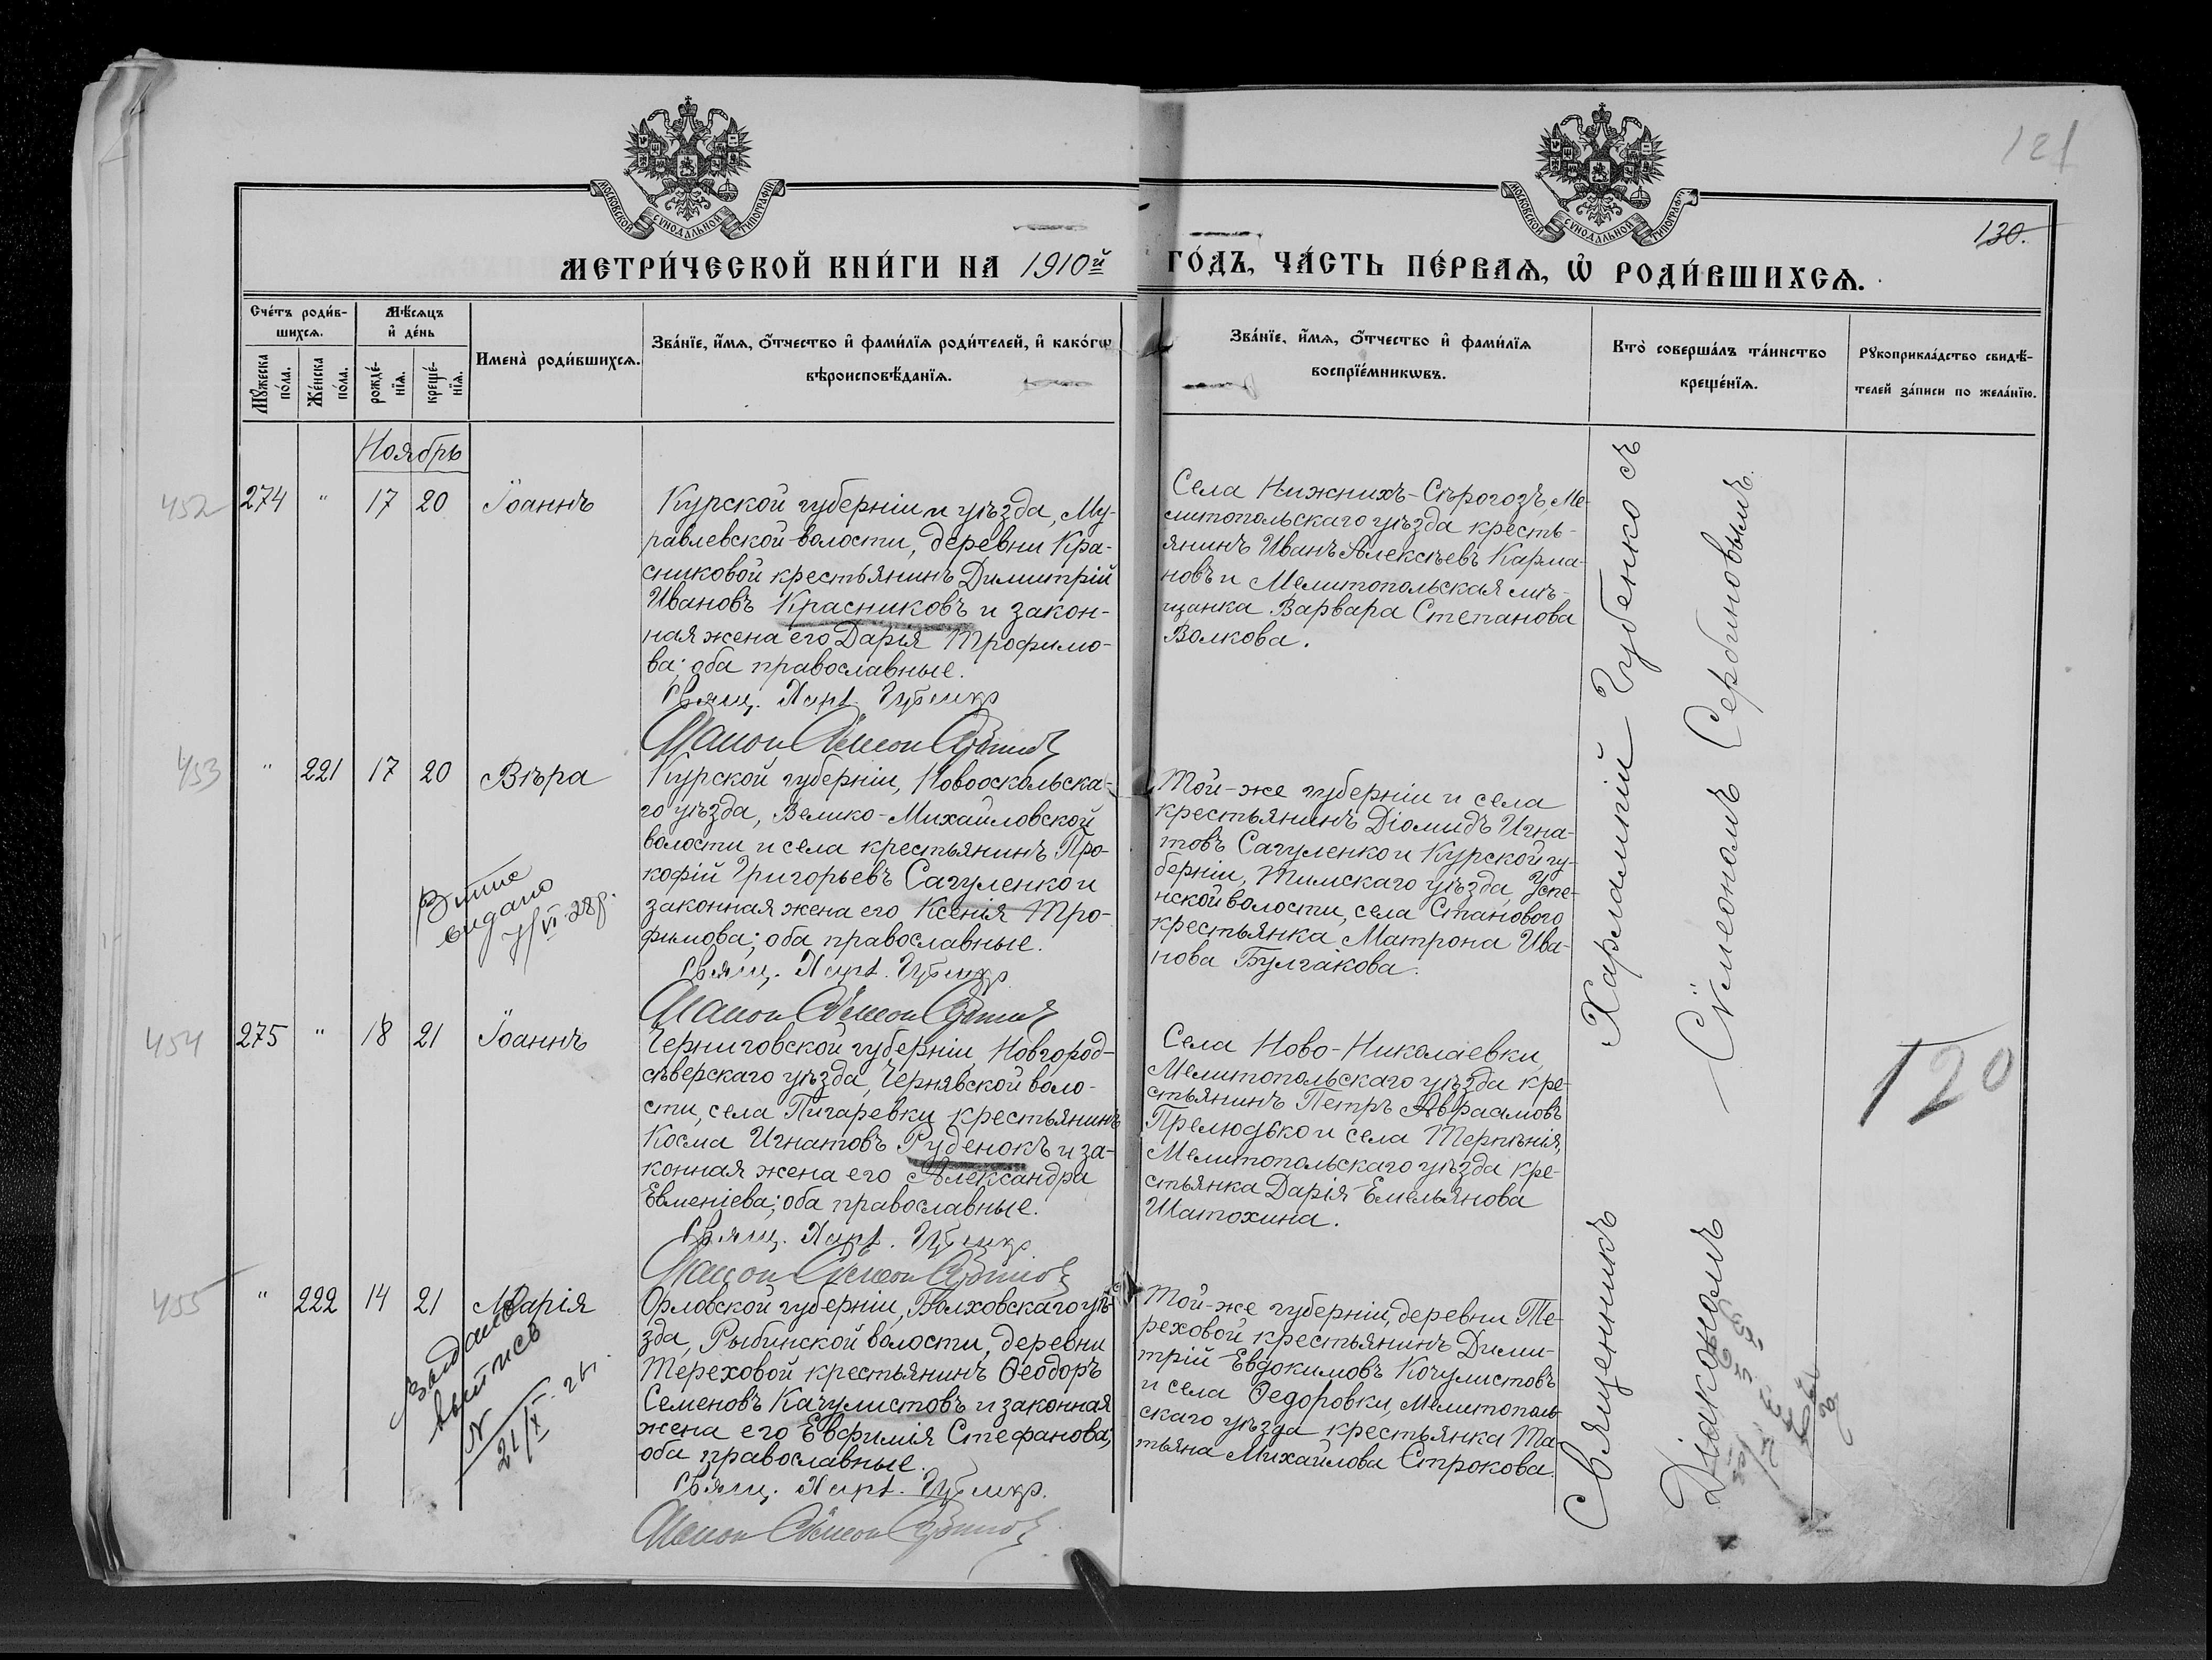 МОСКОВСКОЙ СѴНОДАЛЬНОЙ ТИПОГРАФІИ
МОСКОВСКОЙ СѴНОДАЛЬНОЙ ТИПОГРАФІИ
121
130.
МЕТРИ́ЧЕСКОЙ КНИ́ГИ НА 1910й ГО́ДЪ, ЧА́СТЬ ПЕ́РВАѦ, Ѡ РОДИ́ВШИХСѦ.
Сче́тъ роди́в-
шихсѧ.
Мꙋ́жеска по́ла.
Же́нска по́ла.
Мѣ́сѧцъ
и де́нь
рожде́-
нїѧ.
креще́-
нїѧ.
Имена̀ роди́вшихсѧ.
Зва́нїе, и́мѧ, о́тчество и фами́лїѧ роди́телей, и како́гѡ
вѣроисповѣ́данїѧ.
Зва́нїе, и́мѧ, о́тчество и фами́лїѧ
воспрїе́мникѡвъ.
Кто̀ соверша́лъ та́инство
креще́нїѧ.
Рꙋкоприкла́дство свидѣ́-
телей за́писи по жела́нїю.
Ноябрь
452
274 " 17 20 Іоаннъ
Курской губерніи и уѣзда, Му-
равлевской волости, деревни Кра-
сниковой крестьянинъ Димитрій
Ивановъ Красниковъ и закон-
ная жена его Дарія Трофимо-
ва; оба православные.
Свящ. Харл. Губенко
Діаконъ Сѵмеонъ Сербиновъ
Села Нижнихъ-Сѣрогозъ, Ме-
литопольскаго уѣзда кресть-
янинъ Иванъ Алексѣевъ Карма-
новъ и Мелитопольская мѣ-
щанка Варвара Степанова
Волкова.
453
" 221 17 20 Вѣра
Курской губерніи, Новооскольска-
го уѣзда, Велико-Михайловской
волости и села крестьянинъ Про-
кофій Григорьевъ Сагуленко и
законная жена его Ксенія Тро-
фимова; оба православные.
Свящ. Харл. Губенко
Діаконъ Сѵмеонъ Сербиновъ
выдано
Той-же губерніи и села
крестьянинъ Діомидъ Игна-
товъ Сагуленко и Курской гу-
берніи, Тимскаго уѣзда, Успе-
нской волости, села Станового
крестьянка Матрона Ива-
нова Булгакова.
454
275 " 18 21 Іоаннъ
Черниговской губерніи, Новгород-
сѣверскаго уѣзда, Чернявской воло-
сти, села Пигаревки крестьянинъ
Косма Игнатовъ Руденокъ и за-
конная жена его Александра
Евменіева; оба православные.
Свящ. Харл. Губенко
Діаконъ Сѵмеонъ Сербиновъ
Села Ново-Николаевки,
Мелитопольскаго уѣзда кре-
стьянинъ Петръ Авраамовъ
Прелюдько и села Терпѣнія,
Мелитопольскаго уѣзда кре-
стьянка Дарія Емельянова
Шатохина.
455
" 222 14 21 Марія
Орловской губерніи, Болховскаго уѣ-
зда, Рыбинской волости, деревни
Тереховой крестьянинъ Ѳеодоръ
Семеновъ Качулистовъ и законная
жена его Евфимія Стефанова;
оба православные.
Свящ. Харл. Губенко
Діаконъ Сѵмеонъ Сербиновъ
выпись
Той-же губерніи, деревни Те-
реховой крестьянинъ Дими-
трій Евдокимовъ Качулистовъ
и села Ѳедоровки, Мелитополь-
скаго уѣзда крестьянка Та-
тьяна Михайлова Строкова.
Священникъ Харлампій Губенко съ
Діакономъ Сѵмеономъ Сербиновымъ.
120